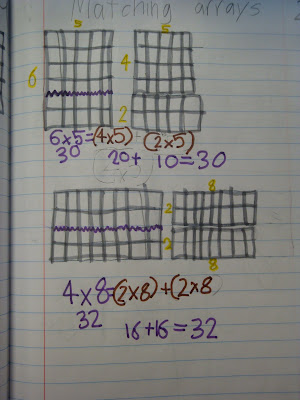 Matching arrays
5 5
6 4
2
6x5=(4x5) (2x5)
30 20+ 10=30
8
2
2
8
4x8=(2x8)+(2x8
32 16+16=32